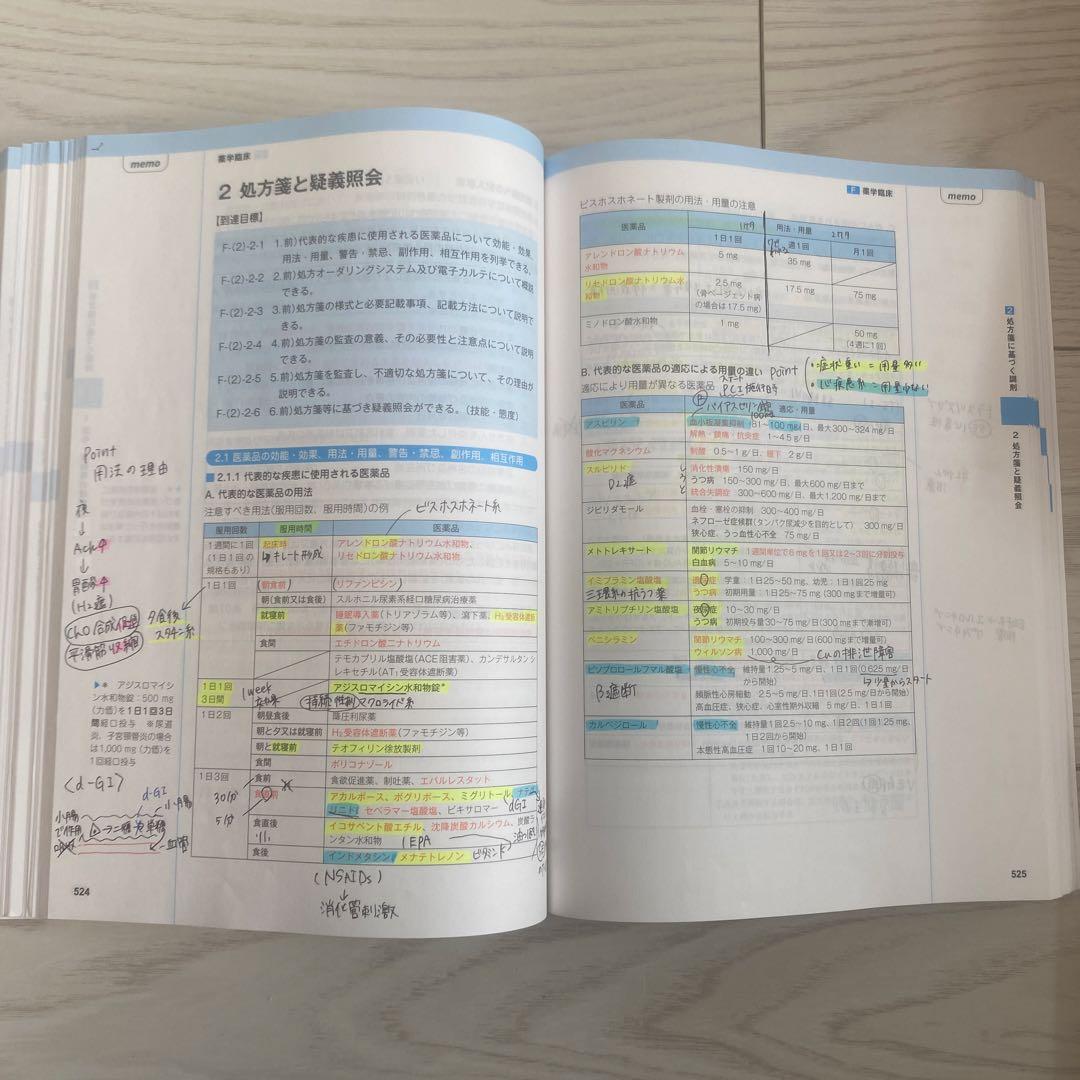 memo
薬学臨床
2 処方箋と疑義照会
【到達目標】
F-(2)-2-1 1.前)代表的な疾患に使用される医薬品について効能・効果、
用法・用量、警告・禁忌、副作用、相互作用を列挙できる。
F-(2)-2-2 2.前)処方オーダリングシステム及び電子カルテについて概説
できる。
F-(2)-2-3 3.前)処方箋の様式と必要記載事項、記載方法について説明で
きる。
F-(2)-2-4 4.前)処方箋の監査の意義、その必要性と注意点について説明
できる。
F-(2)-2-5 5.前)処方箋を監査し、不適切な処方箋について、その理由が
説明できる。
F-(2)-2-6 6.前)処方箋等に基づき疑義照会ができる。(技能・態度)
2.1 医薬品の効能・効果、用法・用量、警告・禁忌、副作用、相互作用
■ 2.1.1 代表的な疾患に使用される医薬品
A. 代表的な医薬品の用法
注意すべき用法(服用回数、服用時間)の例
ビスホスホネート系
服用回数 服用時間 医薬品
1週間に1回
(1日1回の
規格もあり)
起床時
キレート形成
アレンドロン酸ナトリウム水和物、
リセドロン酸ナトリウム水和物、
1日1回 (朝食前) (リファンピシン)
(朝食前又は食後) スルホニル尿素系経口糖尿病治療薬
就寝前 睡眠導入薬(トリアゾラム等)、瀉下薬、H₂受容体遮断
薬(ファモチジン等)
食間 エチドロン酸二ナトリウム
テモカプリル塩酸塩(ACE阻害薬)、カンデサルタンシ
レキセチル(AT₁受容体遮断薬)
1日1回
3日間
1week
アジスロマイシン水和物錠*
1日2回 朝昼食後 降圧利尿薬
朝と夕又は就寝前 H₂受容体遮断薬(ファモチジン等)
朝と就寝前 テオフィリン徐放製剤
食間 ボリコナゾール
1日3回 食前 食欲促進薬、制吐薬、エパルレスタット
30分
5分
食直前 アカルボース、ボグリボース、ミグリトール、ナテグ
リニド セベラマー塩酸塩、ビキサロマー
食直後 イコサペント酸エチル、沈降炭酸カルシウム、炭酸ラ
ンタン水和物 EPA
食後 インドメタシン、メナテトレノン ビタミンK
(NSAIDs)
↓
消化管刺激
Point
用法の理由
夜
↓
Ach↑
↓
胃酸↑
(H₂遮)
cho合成促進
平滑筋収縮
夕食後
スタチン系
▶* アジスロマイシ
ン水和物錠:500 mg
(力価)を1日1回3日
間経口投与 ※尿道
炎、子宮頸管炎の場合
は1,000 mg(力価)を
1回経口投与
〈α-GI〉
α-GI
小腸
二糖
単糖
血管
524
F 薬学臨床
memo
ビスホスホネート製剤の用法・用量の注意
医薬品 用法・用量
1日1回 週1回 月1回
アレンドロン酸ナトリウム
水和物
5 mg 35 mg
リセドロン酸ナトリウム水
和物
2.5 mg
(骨ページェット病
の場合は17.5 mg)
17.5 mg 75 mg
ミノドロン酸水和物 1 mg 50 mg
(4週に1回)
B. 代表的な医薬品の適応による用量の違い Point
・症状重い=用量多い
・心疾患系=用量少ない
適応により用量が異なる医薬品 PCI施行時
バイアスピリン錠
100mg
医薬品 適応・用量
アスピリン 血小板凝集抑制 81~100 mg/日、最大300~324 mg/日
解熱・鎮痛・抗炎症 1~4.5 g/日
酸化マグネシウム 制酸 0.5~1 g/日 緩下 2 g/日
スルピリド 消化性潰瘍 150 mg/日
D₂遮
うつ病 150~300 mg/日、最大600 mg/日まで
統合失調症 300~600 mg/日、最大1,200 mg/日まで
ジピリダモール 血栓・塞栓の抑制 300~400 mg/日
ネフローゼ症候群(タンパク尿減少を目的として) 300 mg/日
狭心症、うっ血性心不全 75 mg/日
メトトレキサート 関節リウマチ 1週間単位で6 mgを1回又は2~3回に分割投与
白血病 5~10 mg/日
イミプラミン塩酸塩 遺尿症 学童:1日25~50 mg、幼児:1日1回25 mg
三環系の抗うつ薬 うつ病 初期用量:1日25~75 mg(300 mgまで増量可)
アミトリプチリン塩酸塩 夜尿症 10~30 mg/日
うつ病 初期投与量30~75 mg/日(300 mgまで漸増可)
ペニシラミン 関節リウマチ 100~300 mg/日(600 mgまで増量可)
ウィルソン病 1,000 mg/日 Cuの排泄障害
ビソプロロールフマル酸塩 慢性心不全 維持量1.25~5 mg/日、1日1回(0.625 mg/日
から開始)
少量からスタート
β遮断
頻脈性心房細動 2.5~5 mg/日、1日1回(2.5 mg/日から開始)
高血圧症、狭心症、心室性期外収縮 5 mg/日、1日1回
カルベジロール 慢性心不全 維持量1回2.5~10 mg、1日2回(1回1.25 mg、
1日2回から開始)
本態性高血圧症 1回10~20 mg、1日1回
2 処方箋に基づく調剤
2 処方箋と疑義照会
525